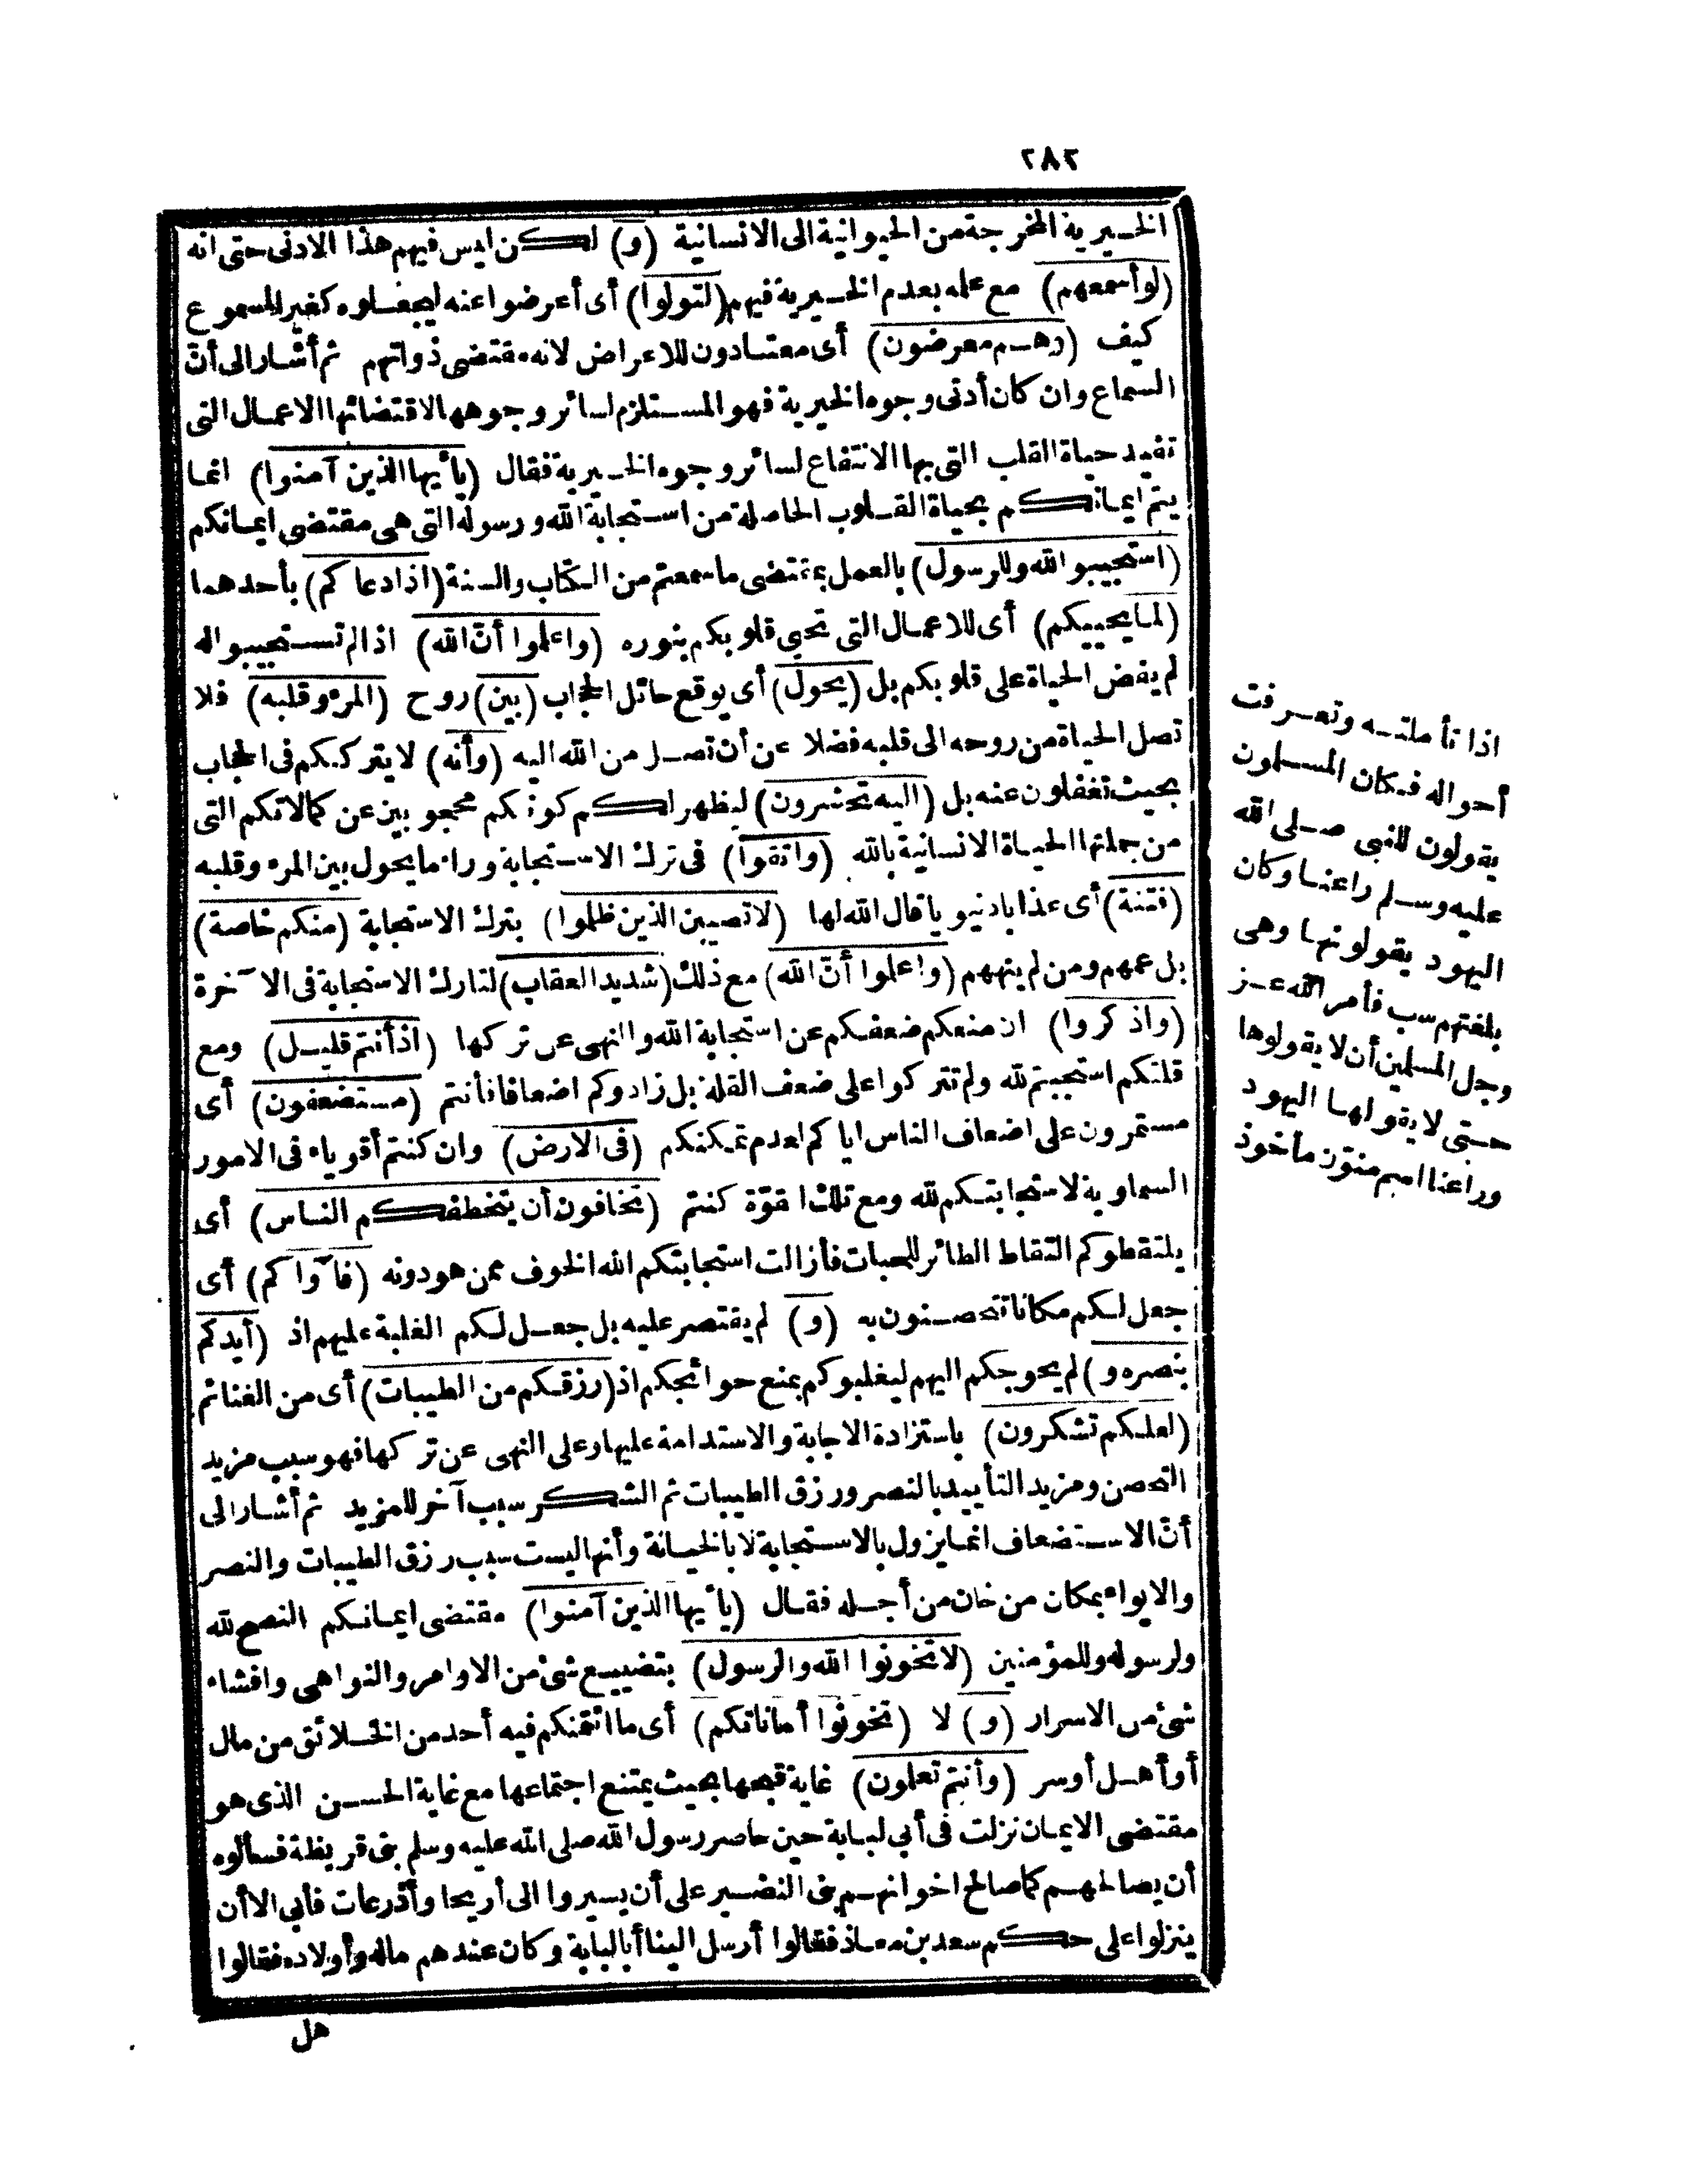 ٢٨٢
الخيرية المخرجة من الحيوانية الى الانسانية (و) لكن ليس فيهم هذا الادنى حتى انه
(لو أسمعهم) مع علمه بعدم الخيرية فيهم (لتولوا) أى أعرضوا عنه ليجعلوه كغير المسموع
كيف (وهم معرضون) أى معتادون للاعراض لانه مقتضى ذواتهم ثم أشار الى أنّ
السماع وان كان أدنى وجوه الخيرية فهو المستلزم لسائر وجوهها لاقتضائها الاعمال التى
تفيد حياة القلب التى بها الانتفاع لسائر وجوه الخيرية فقال (يا أيها الذين آمنوا) انما
يتم ايمانكم بحياة القلوب الحاصلة من استجابة الله ورسوله التى هى مقتضى ايمانكم
(استجيبوا لله وللرسول) بالعمل بمقتضى ما سمعتم من الكتاب والسنة (اذا دعاكم) بأحدهما
(لما يحييكم) أى للاعمال التى تحيى قلوبكم بنوره (واعلموا أنّ الله) اذا لم تستجيبوا له
لم يفض الحياة على قلوبكم بل (يحول) أى يوقع حائل الحجاب (بين) روح (المرء وقلبه) فلا
تصل الحياة من روحه الى قلبه فضلا عن أن تصل من الله اليه (وأنه) لا يترككم فى الحجاب
بحيث تغفلون عنه بل (اليه تحشرون) ليظهر لكم كونكم محجوبين عن كمالاتكم التى
من جملتها الحياة الانسانية بالله (واتقوا) فى ترك الاستجابة وراء ما يحول بين المرء وقلبه
(فتنة) أى عذابا دنيويا قال الله لها (لا تصيبن الذين ظلموا) بترك الاستجابة (منكم خاصة)
بل عمهم ومن لم ينههم (واعلموا أنّ الله) مع ذلك (شديد العقاب) لتارك الاستجابة فى الآخرة
(واذكروا) ان منعكم ضعفكم عن استجابة الله والنهى عن تركها (اذ أنتم قليل) ومع
قلتكم استجبتم لله ولم تتركوا على ضعف القلة بل زادوكم اضعافا فأنتم (مستضعفون) أى
مستمرون على اضعاف الناس اياكم لعدم تمكنكم (فى الارض) وان كنتم أقوياء فى الامور
السماوية لاستجابتكم لله ومع تلك القوّة كنتم (تخافون أن يتخطفكم الناس) أى
يلتقطوكم التقاط الطائر للحبات فأزالت استجابتكم الله الخوف ممن هو دونه (فآواكم) أى
جعل لكم مكانا تتحصنون به (و) لم يقتصر عليه بل جعل لكم الغلبة عليهم اذ (أيدكم
بنصره و) لم يحوجكم اليهم ليغلبوكم بمنع حوائجكم اذ (رزقكم من الطيبات) أى من الغنائم
(لعلكم تشكرون) باستزادة الاجابة والاستدامة عليها وعلى النهى عن تركها فهو سبب مزيد
التحصن ومزيد التأييد بالنصر ورزق الطيبات ثم الشكر سبب آخر للمزيد ثم أشار الى
أنّ الاستضعاف انما يزول بالاستجابة لا بالخيانة وأنها ليست سبب رزق الطيبات والنصر
والايواء بمكان من خان من أجله فقال (يا أيها الذين آمنوا) مقتضى ايمانكم النصح لله
ولرسوله وللمؤمنين (لا تخونوا الله والرسول) بتضييع شئ من الاوامر والنواهى وافشاء
شئ من الاسرار (و) لا (تخونوا أماناتكم) أى ما ائتمنكم فيه أحد من الخلائق من مال
أو أهل أو سر (وأنتم تعلمون) غاية قبحها بحيث يمتنع اجتماعها مع غاية الحسن الذى هو
مقتضى الايمان نزلت فى أبى لبابة حين حاصر رسول الله صلى الله عليه وسلم بنى قريظة فسألوه
أن يصالحهم كما صالح اخوانهم بنى النضير على أن يسيروا الى أريحا وأذرعات فأبى الا أن
ينزلوا على حكم سعد بن معاذ فقالوا أرسل الينا أبا لبابة وكان عندهم ماله وأولاده فقالوا
هل
اذا تأملته وتعرفت
أحواله فكان المسلمون
يقولون للنبى صلى الله
عليه وسلم راعنا وكان
اليهود يقولونها وهى
بلغتهم سب فأمر الله عز
وجل المسلمين أن لا يقولوها
حتى لا يقولها اليهود
وراعنا اسم منوّن مأخوذ